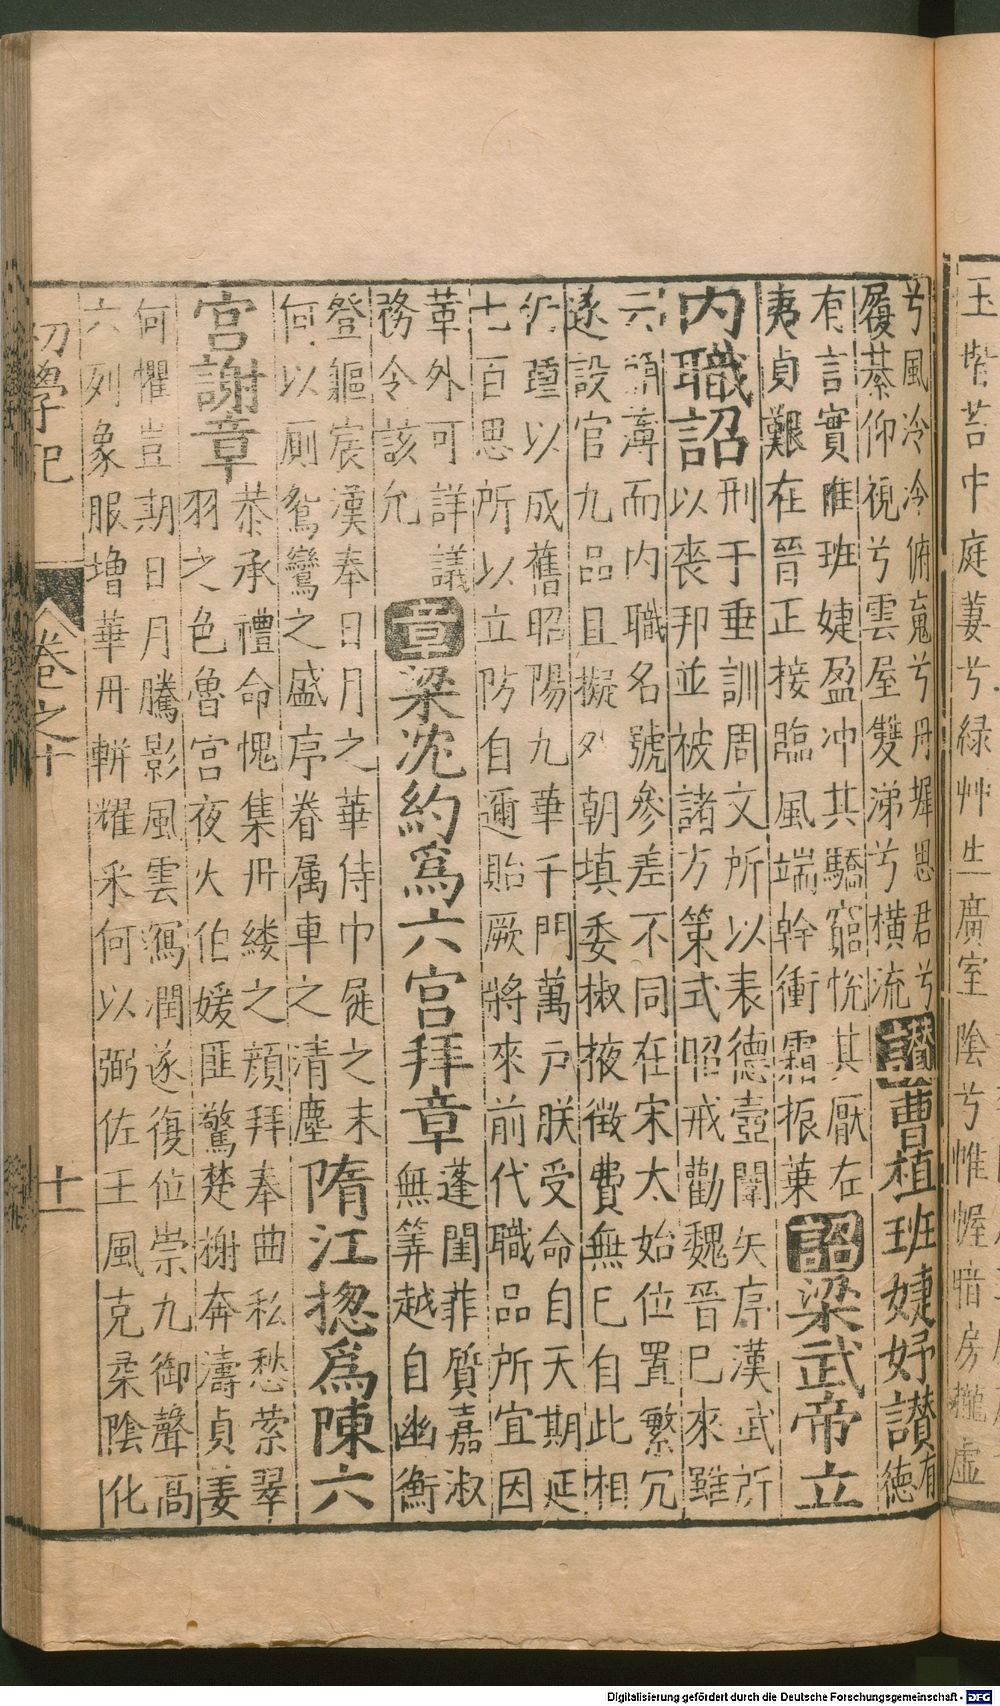 玉堦苔中庭萋兮綠艸生廣室陰兮帷幄暗房櫳虛
兮風泠泠俯䰟兮丹墀思君兮
履綦仰視兮雲屋雙涕兮橫流
讚曹植班婕妤讃
有
德
有言實惟班婕盈冲其驕窮恱其厭在
夷貞艱在晉正接臨風端幹衝霜振葉
詔梁武帝立
内職詔
刑于垂訓周文所以表德壼闈矢序漢武所
以喪邦並被諸方策式昭戒勸魏晉已來雖
示簡薄而内職名號參差不同在宋太始位置繁冗
遂設官九品且擬外朝填委椒掖徴費無巳自此相
以成舊昭陽九華千門萬戸朕受命自天期延
七百思所以立防自邇貽厥將來前代職品所宜因
革外可詳議
務令該允
章梁沈約爲六宮拜章
蓬閨菲質嘉淑
無筭越自幽衡
登軀宸漢奉日月之華侍巾屣之末
何以厠鴛鸞之盛序眷属車之清塵
隋江揔爲陳六
宮謝章
恭承禮命愧集丹縷之顔拜奉曲私愁縈翠
羽之色魯宮夜火伯媛匪驚楚榭奔濤貞姜
何懼豈期日月騰影風雲寫潤遂復位崇九御聲高
六列象服増華丹軿耀釆何以弼佐王風克柔陰化
初學記
卷之十
十一
Digitalisierung gefördert durch die Deutsche Forschungsgemeinschaft - DFG